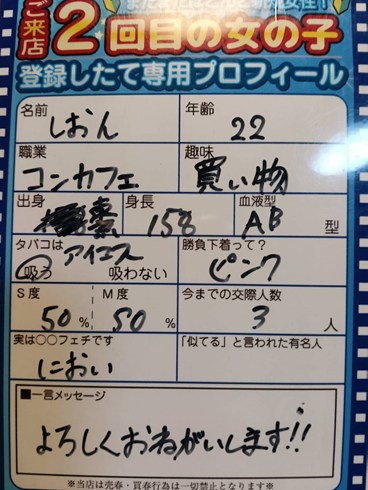 ご来店
2回目の女の子
登録したて専用プロフィール
名前
しおん
年齢
22
職業
コンカフェ
趣味
買い物
出身
身長
158
血液型
AB 型
タバコは
アイコス
吸う 吸わない
勝負下着って?
ピンク
S度
50 %
M度
50 %
今までの交際人数
3 人
実は○○フェチです
におい
「似てる」と言われた有名人
■一言メッセージ
よろしくおねがいします!!
※当店は売春・買春行為は一切禁止となります※